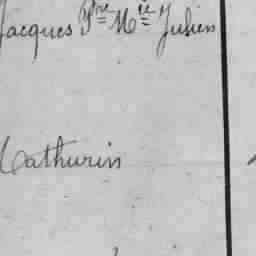 Jacques Pre Mie Julien
Mathurin